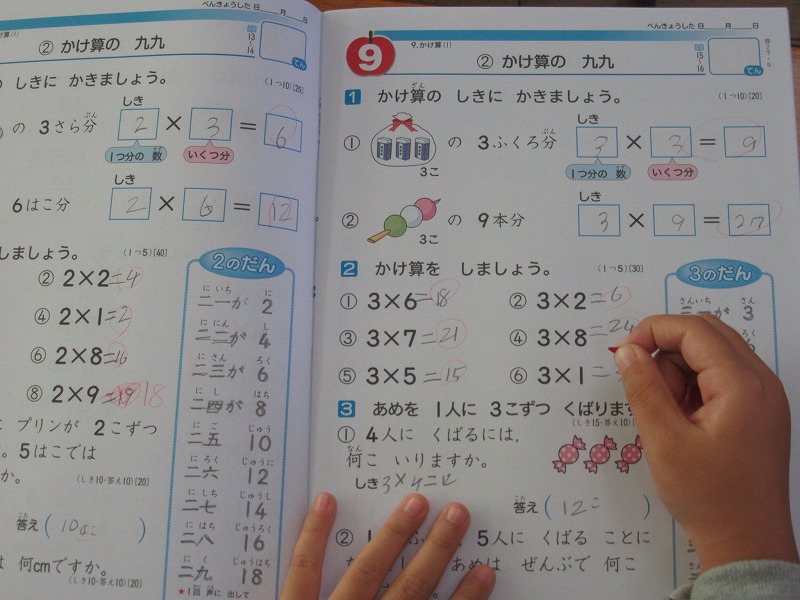 べんきょうした 日 月 日
け算(1)
② かけ算の 九九
13
14
てん
しきに かきましょう。
(1つ10)[20]
しき
の 3さら分
2 × 3 = 6
1つ分の 数
いくつ分
しき
6はこ分
2 × 6 = 12
しましょう。
(1つ5)[40]
② 2×2=4
④ 2×1=2
⑥ 2×8=16
⑧ 2×9=18
プリンが 2こずつ
5はこでは
か。
(しき10・答え10)[20]
答え( 10 )
何cmですか。
(しき10・答え10)[20]
2のだん
にいち に
二一が 2
ににん し
二二が 4
にさん ろく
二三が 6
にし はち
二四が 8
にご じゅう
二五 10
にろく じゅうに
二六 12
にしち じゅうし
二七 14
にはち じゅうろく
二八 16
にく じゅうはち
二九 18
★1回 声に 出して
べんきょうした 日 月 日
9
9.かけ算(1)
② かけ算の 九九
15
16
てん
1 かけ算の しきに かきましょう。
(1つ10)[20]
① の 3ふくろ分
3こ
しき
3 × 3 = 9
1つ分の 数
いくつ分
② の 9本分
3こ
しき
3 × 9 = 27
2 かけ算を しましょう。
(1つ5)[30]
① 3×6=18
② 3×2=6
③ 3×7=21
④ 3×8=24
⑤ 3×5=15
⑥ 3×1=
3のだん
さんいち さん
三一が 3
3 あめを 1人に 3こずつ くばります
(しき15・答え10)
① 4人に くばるには、
何こ いりますか。
しき 3×4=12
答え( 12こ )
② 5人に くばる ことに
あめは ぜんぶで 何こ